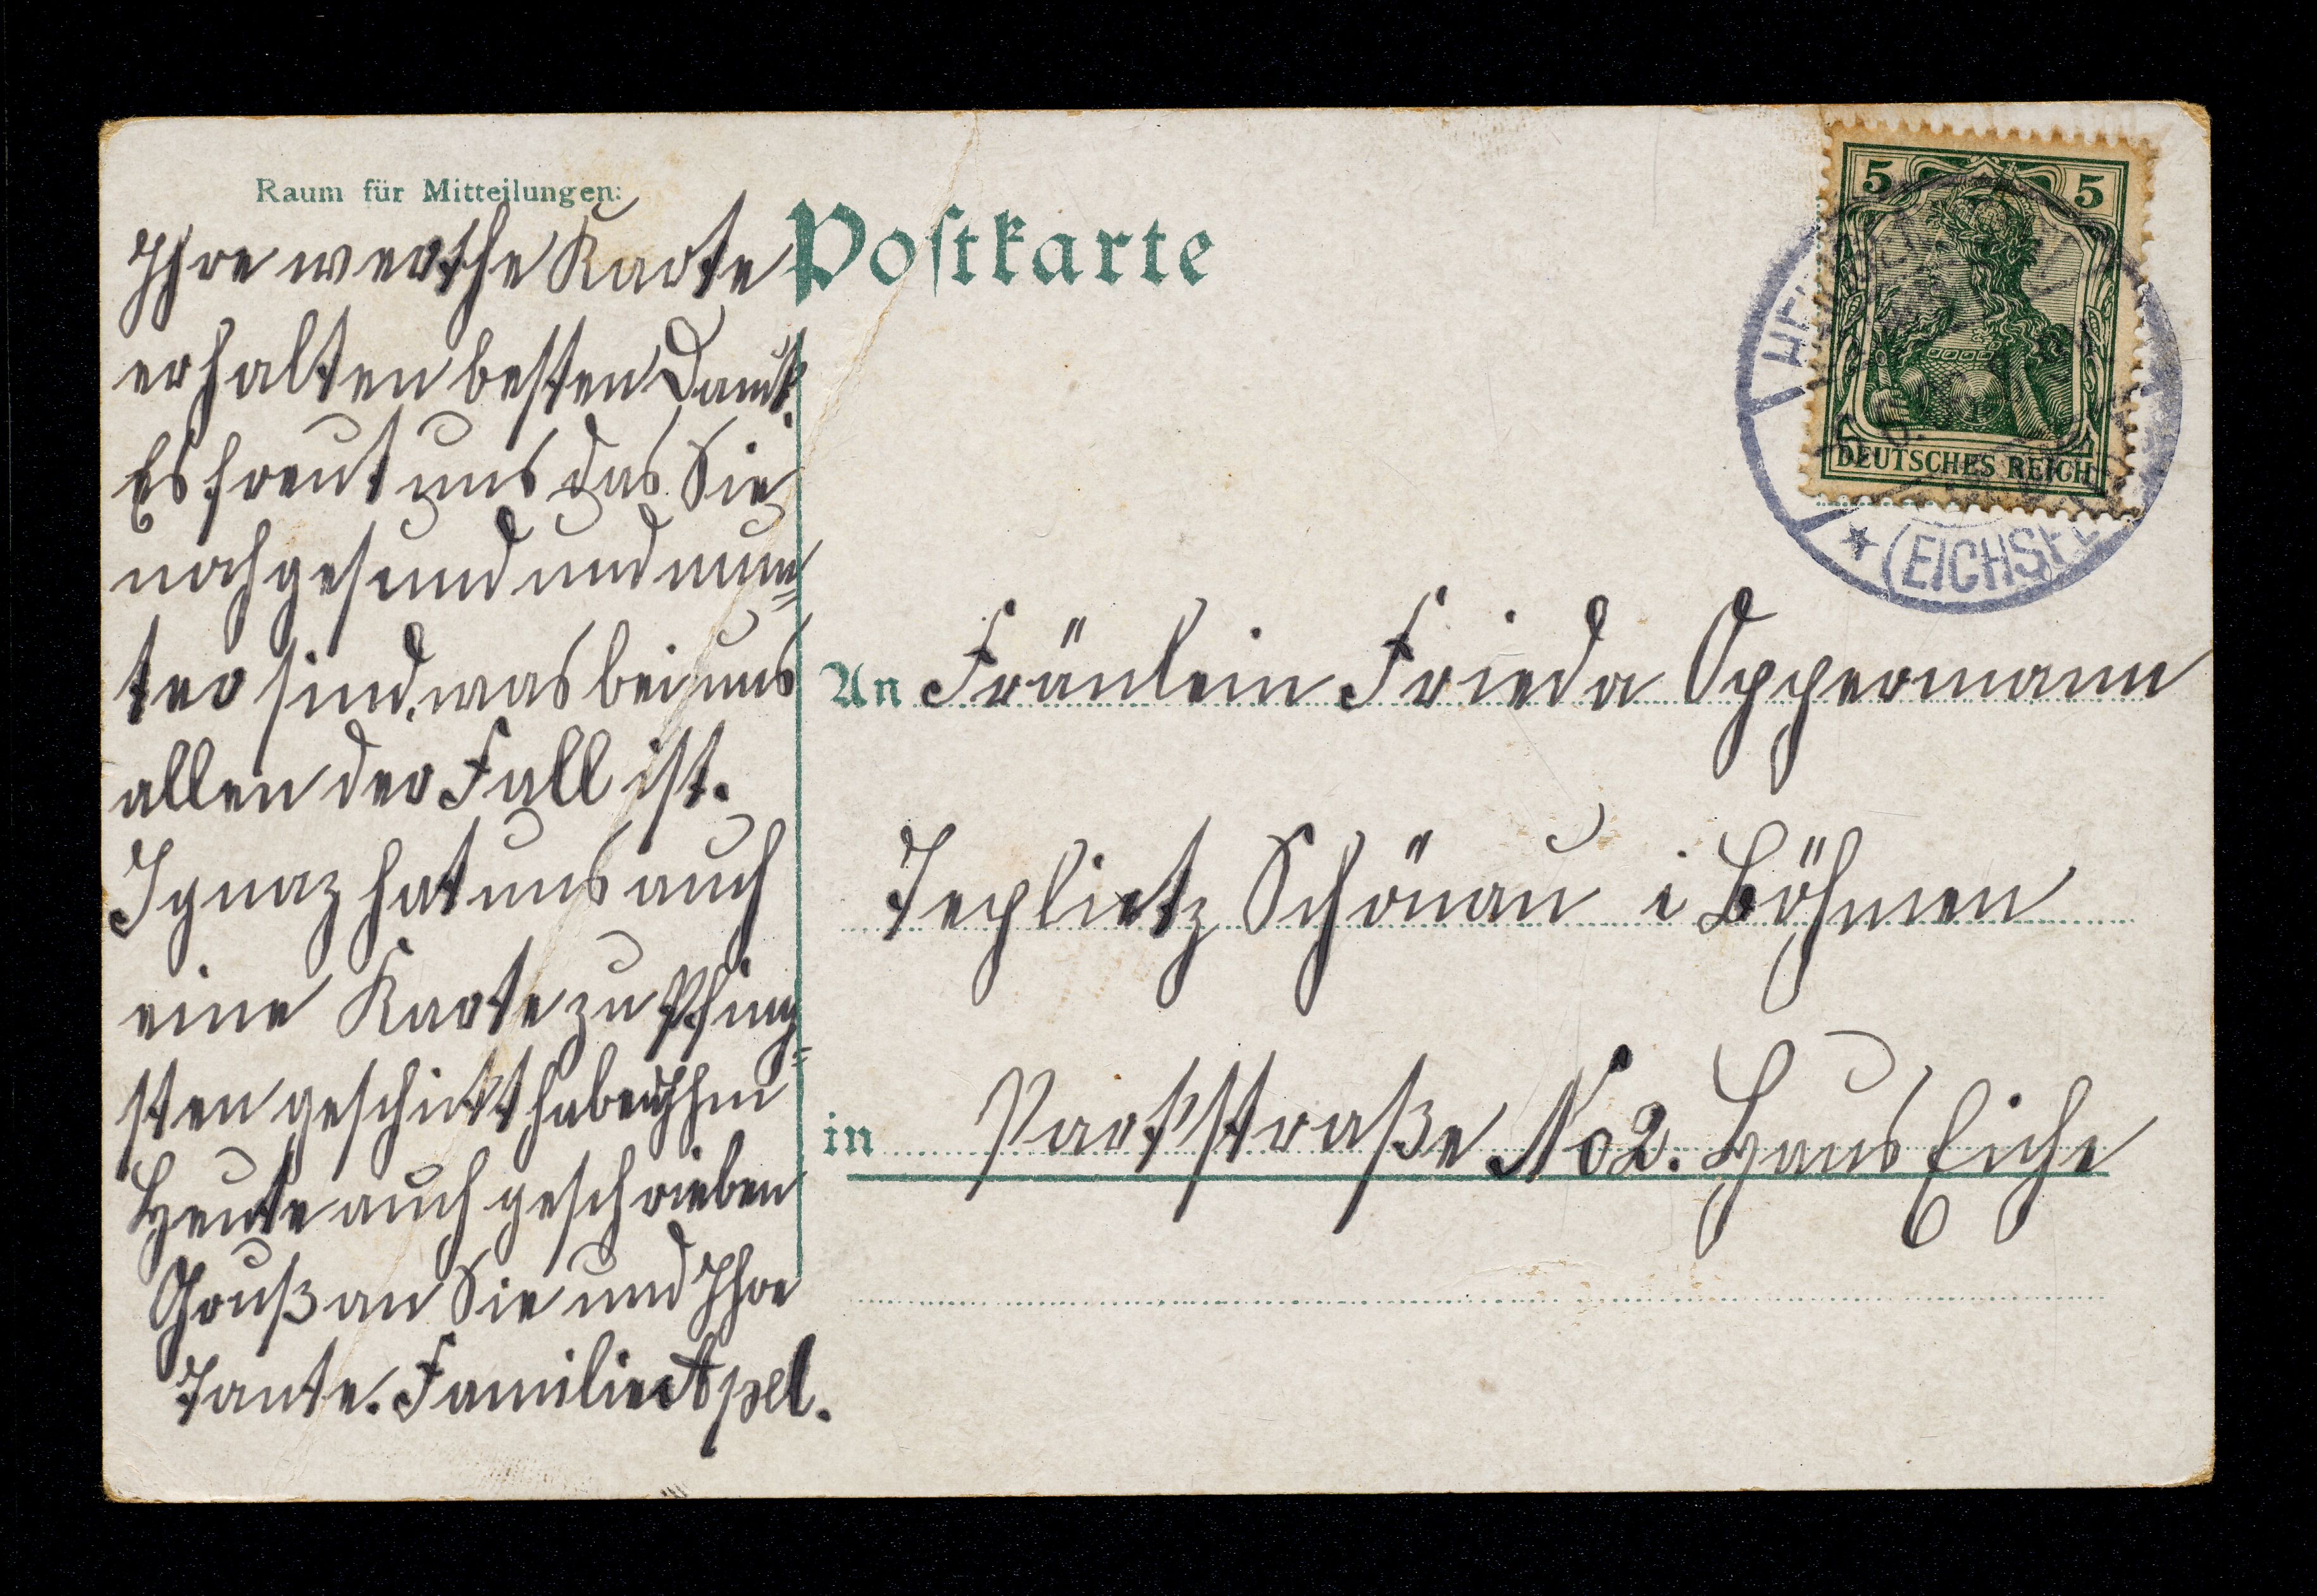 Raum für Mitteilungen:
Ihre werthe Karte
erhalten besten Dank.
Es freut uns das Sie
noch gesund und mun=
ter sind, was bei uns
allen der Fall ist.
Ignaz hat uns auch
eine Karte zu Pfing=
sten geschickt haben Ihm
Heute auch geschrieben
Gruß an Sie und Ihre
Tante. Familie Apel.
Postkarte
5 5
DEUTSCHES REICH
(EICHSF
An Fräulein Frieda Oppermann
Teplietz Schönau i Böhmen
in Parkstraße No 2. Haus Eiche